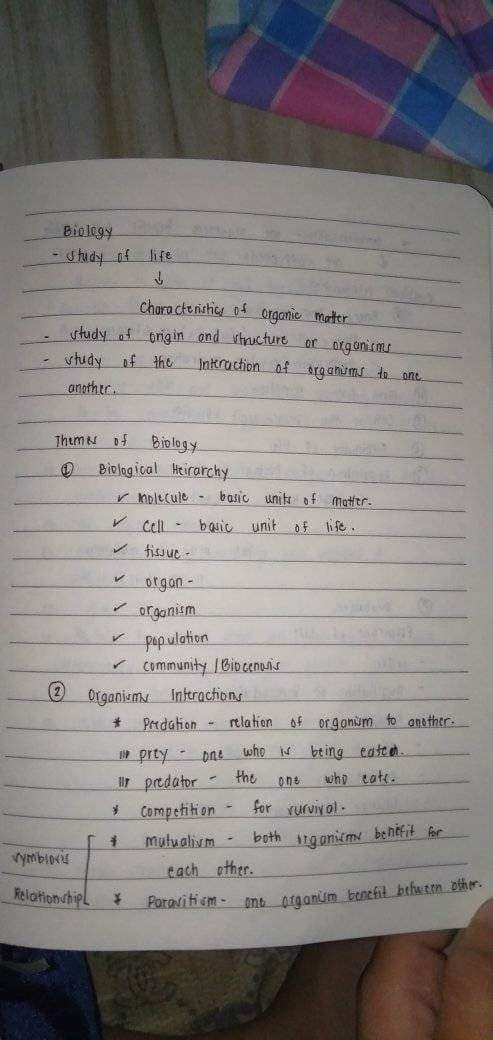 Biology
- study of life
↓
Characteristics of organic matter
- study of origin and structure or organisms
- study of the Interaction of organisms to one
another.
Themes of Biology
① Biological Heirarchy
✓ Molecule - basic units of matter.
✓ Cell - basic unit of life.
✓ tissue -
✓ organ -
✓ organism
✓ population
✓ community / Biocenosis
② Organisms Interactions
* Predation - relation of organism to another.
prey - one who is being eaten.
predator - the one who eats.
* competition - for survival.
* mutualism - both organisms benefit for
each other.
symbiosis
Relationship
* Parasitism - one organism benefit between other.